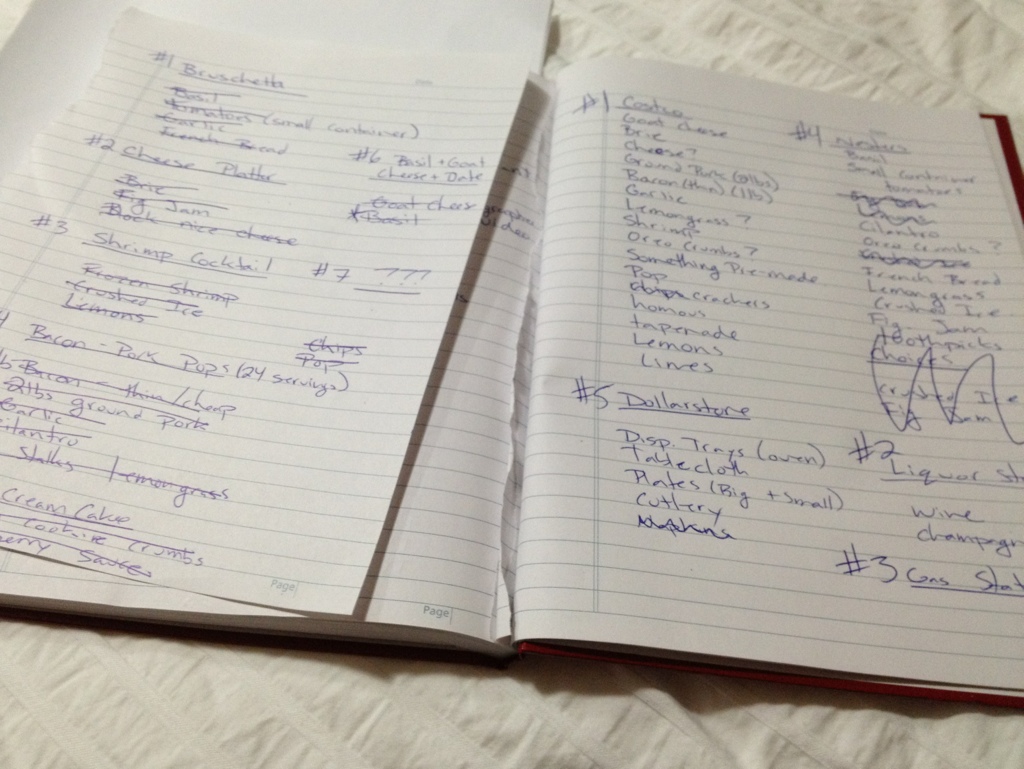 #1 Bruschetta
Basil
tomatoes (small container)
Garlic
French Bread
#2 Cheese Platter
Brie
Fig Jam
Block nice cheese
#3
Shrimp Cocktail
Frozen Shrimp
Crushed Ice
Lemons
Bacon - Pork Pops (24 servings)
Bacon - thin/cheap
2lbs ground Pork
Garlic
Cilantro
Stalks lemongrass
Cream Cake
Cookie Crumbs
Sauce
#6 Basil + Goat
cheese + Date
Goat Cheese
*Basil
#7 ???
Chips
Pop
Page
Page
#1 Costco
Goat Cheese
Brie
Cheese?
Ground Pork (2lbs)
Bacon (thin) (1lb)
Garlic
Lemongrass?
Shrimp
Oreo Crumbs?
Something Pre-made
Pop
crackers
homous
tapenade
Lemons
Limes
#5 Dollarstore
Disp. Trays (oven)
Tablecloth
Plates (Big + Small)
Cutlery
Napkins
#4
Basil
Small container
tomatoes
Lemons
Cilantro
Oreo Crumbs?
French Bread
Lemongrass
Crushed Ice
Fig Jam
toothpicks
Crushed Ice
Fig Jam
#2
Liquor
Wine
#3 Gas